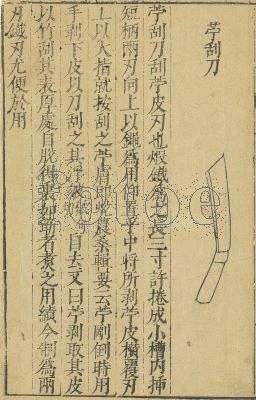 苧刮刀
苧刮刀刮苧皮刃也煆鐵爲之長三寸許捲成小槽內插
短柄兩刃向上以鈍爲用仰置手中將所剥苧皮橫覆刃
上以大指就按刮之苧膚即蛻農桑輯要云苧刈倒時用
手剥下皮以刀刮之其浮皴自去又曰苧剥取其皮
以竹刮其表厚處自脫得裏如筋者煮之用緝今制爲兩
刃鐵刀尤便於用